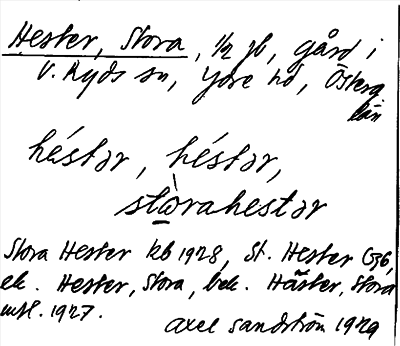 Hester, Stora, 1/2 jb, gård i
V. Ryds sn, Ydre hd, Österg
län
héstər, héstər,
stɷ̀rahestər
Stora Hester kb 1928, St. Hester G36,
ek. Hester, Stora, bek. Häster, Stora
mtl. 1927.
Axel Sandström 1929